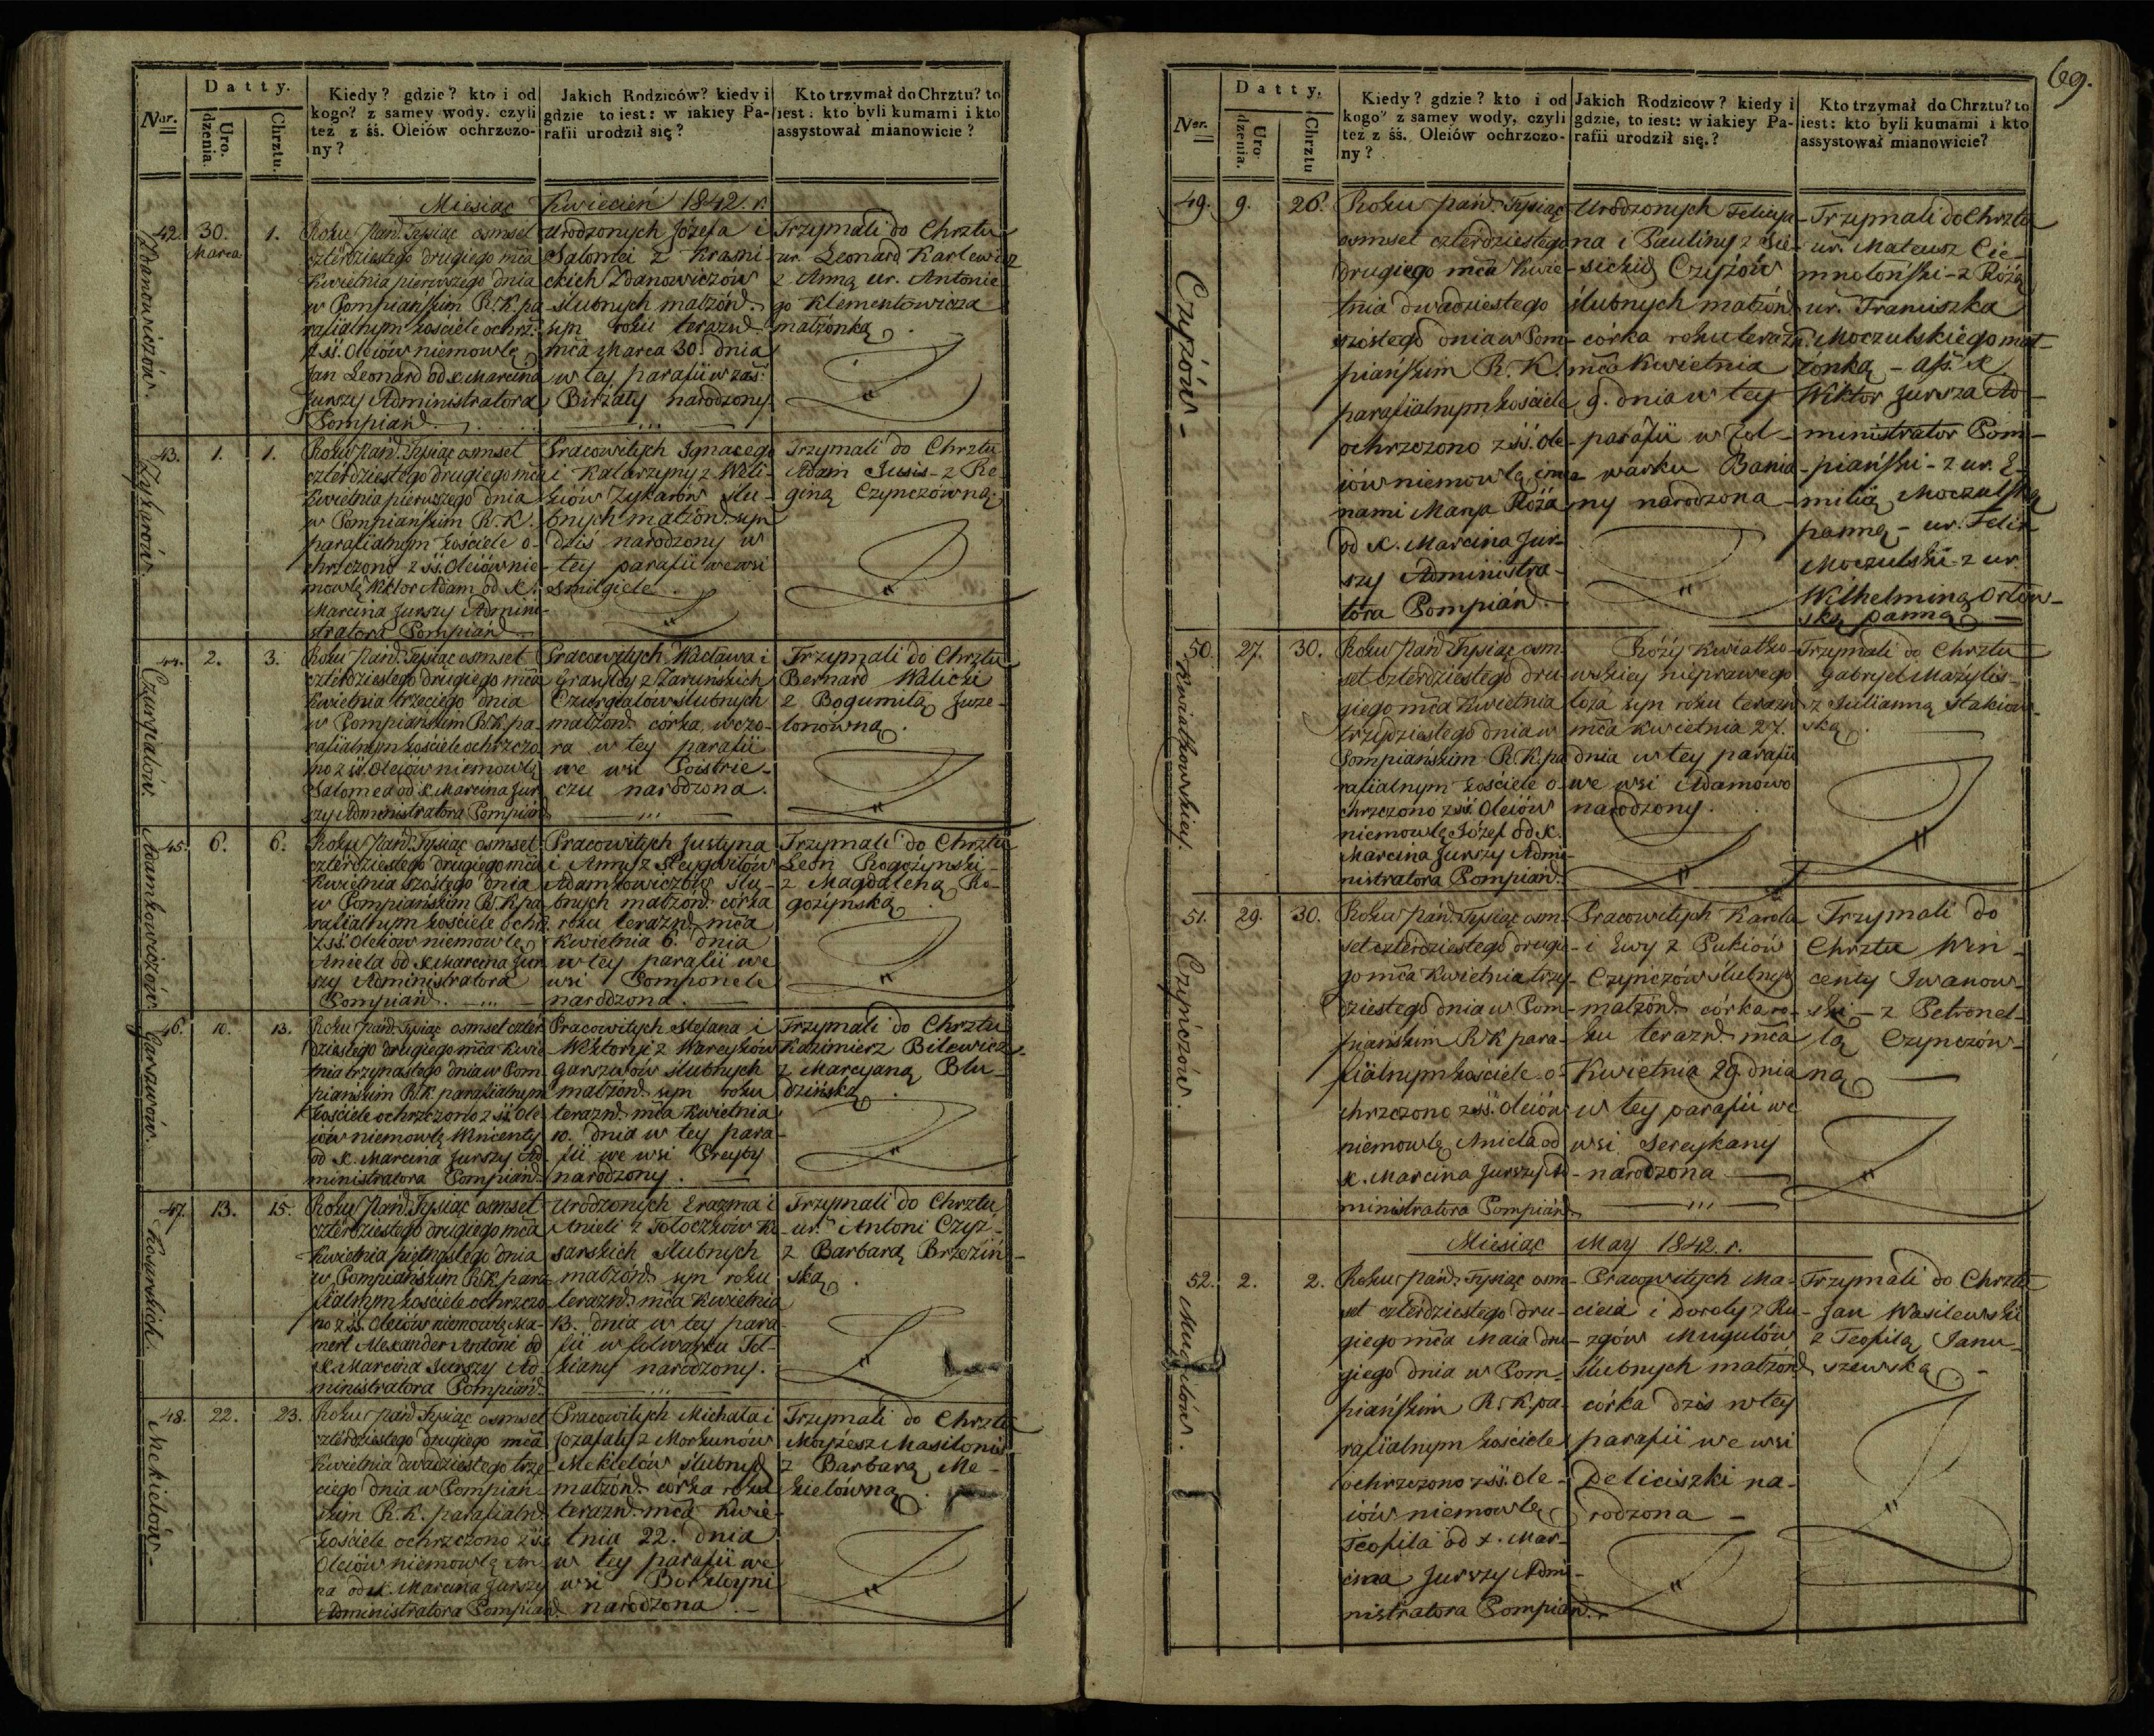 Datty.
Nar.
Uro-
dzenia.
Chrztu.
Kiedy? gdzie? kto i od
kogo? z samey wody. czyli
też z śś. Oleiów ochrzczo-
ny?
Jakich Rodziców? kiedy i
gdzie to iest: w iakiey Pa-
rafii urodził się?
Kto trzymał do Chrztu? to
iest: kto byli kumami i kto
assystował mianowicie?
Miesiąc Kwiecień 1842. r.
42.
Zdanowiczów.
30.
Marca
1.
Roku Pańd. Tysiąc osmset
czterdziestego drugiego mca
Kwietnia pierwszego dnia
w Pompiańskim R. K. pa-
rafiialnym kościele ochrz.
z śś. Oleiów niemowle
Jan Leonard od X. Marcina
Jurszy Administratora
Pompiańd.
Urodzonych Józefa i
Salomei z Krasni-
ckich Zdanowiczów
ślubnych małżónd.
syn roku terazñd.
mca Marca 30. dnia
w tey parafii w zaś:
Birżaty narodzony
Trzymali do Chrztu
ur. Leonard Karlewicz
z Anną ur. Antonie-
go Klementowicza
małżonką.
43.
Zykarów.
1.
1.
Roku Pańd. Tysiąc osmset
czterdziestego drugiego mca
Kwietnia pierwszego dnia
w Pompiańskim R. K.
parafiialnym kościele o-
chrzczono z śś. Oleiów nie-
mowlę Wiktor Adam od X.
Marcina Jurszy Admini-
stratora Pompiańd.
Pracowitych Ignacego
i Katarzyny z Weli-
kiów Zykarów ślu-
bnych małżónd. syn
dziś narodzony w
tey parafii we wsi
Smilgiele.
Trzymali do Chrztu
Adam Susis z Re-
giną Czynczówną.
44.
Czurgiałów.
2.
3.
Roku Pańd. Tysiąc osmset
czterdziestego drugiego mca
Kwietnia trzeciego dnia
w Pompiańskim R. K. pa-
rafiialnym kościele ochrzczo-
no z śś. Oleiów niemowlę
Salomea od X. Marcina Jur-
szy Administratora Pompiańd.
Pracowitych Wacława i
Graszyldy z Zaruńskich
Czurgiałów ślubnych
małżónd. córka, wczo-
ra w tey parafii
we wsi Poistrie-
czu narodzona.
Trzymali do Chrztu
Bernard Walicki
z Bogumiłą Juze-
lonowną.
45.
Adamkowiczów.
6.
6.
Roku Pańd. Tysiąc osmset
czterdziestego drugiego mca
Kwietnia szóstego dnia
w Pompiańskim R. K. pa-
rafiialnym kościele ochrz.
z śś. Oleiów niemowlę
Aniela od X. Marcina Jur-
szy Administratora
Pompiańd.
Pracowitych Justyna
i Anny z Steygwiłów
Adamkowiczów ślu-
bnych małżónd. córka
roku terazñd. mca
Kwietnia 6. dnia
w tey parafii we
wsi Pomponele
narodzona.
Trzymali do Chrztu
Leon Rogożynski
z Magdaleną Ro-
gożynską.
46.
Garszwów.
10.
13.
Roku Pańd. Tysiąc osmset czter-
dziestego drugiego mca Kwie-
tnia trzynastego dnia w Pom-
piańskim R. K. parafiialnym
kościele ochrzczono z śś. Ole-
iów niemowlę Wincenty
od X. Marcina Jurszy Ad-
ministratora Pompiańd.
Pracowitych Stefana i
Wiktoryi z Wareykow
Garszwów ślubnych
małżónd. syn roku
terazñd. mca Kwietnia
10. dnia w tey para-
fii we wsi Preyby
narodzony.
Trzymali do Chrztu
Kazimierz Bilewicz
z Marcyaną Blu-
dzińską.
47.
Kosarskich.
13.
15.
Roku Pańd. Tysiąc osmset
czterdziestego drugiego mca
Kwietnia piętnastego dnia
w Pompiańskim R. K. para-
fiialnym kościele ochrzczo-
no z śś. Oleiów niemowlę Ma-
mert Alexander Antoni od
X. Marcina Jurszy Ad-
ministratora Pompiańd.
Urodzonych Erazma i
Anieli z Tołoczków Ko-
sarskich ślubnych
małżónd. syn roku
terazñd. mca Kwietnia
13. dnia w tey para-
fii w folwarku Tol-
kiany narodzony.
Trzymali do Chrztu
ur. Antoni Czyż
z Barbarą Brzeziń-
ską.
48.
Mekielów.
22.
23.
Roku Pańd. Tysiąc osmset
czterdziestego drugiego mca
Kwietnia dwadziestego trze-
ciego dnia w Pompiań-
skim R. K. parafialnd.
kościele ochrzczono z śś.
Oleiów niemowlę An-
na od X. Marcina Jurszy
Administratora Pompiańd.
Pracowitych Michała i
Jozafaty z Morkunów
Mekielów ślubnych
małżónd. córka roku
terazñd. mca Kwie-
tnia 22. dnia
w tey parafii we
wsi Borkłoyni
narodzona.
Trzymali do Chrztu
Moyżesz Masilonis
z Barbarą Me-
kielówną.
69.
Datty.
Ner.
Uro
dzenia.
Chrztu
Kiedy? gdzie? kto i od
kogo? z samey wody, czyli
też z śś. Oleiów ochrzczo-
ny?
Jakich Rodziców? kiedy i
gdzie, to iest: w iakiey Pa-
rafii urodził się.?
Kto trzymał do Chrztu? to
iest: kto byli kumami i kto
assystował mianowicie?
49.
Czyżów.
9.
26.
Roku pańd. Tysiąc
osmset czterdziestego
drugiego mca Kwie-
tnia dwadziestego
szóstego dnia w Pom-
piańskim R. K.
parafiialnym kościele
ochrzczono z śś. Ole-
iów niemowlę imio-
nami Marya Róża
od X. Marcina Jur-
szy Administra-
tora Pompiańd.
Urodzonych Felicya-
na i Pauliny z Sie-
sickich Czyżów
ślubnych małżónd.
córka roku terazñd.
mca Kwietnia
9. dnia w tey
parafii w Fol-
warku Bania-
ny narodzona
Trzymali do Chrztu
ur. Mateusz Cie-
mnołoński z Różą
ur. Franciszka
Moczulskiego mał-
żonką - ass. X.
Wiktor Jursza Ad-
ministrator Pom-
piański - z ur. E-
milią Moczulską
panną - ur. Felix
Moczulski z ur.
Wilhelminą Orłow-
ską panną
50.
Kwiatkowskiey.
27.
30.
Roku Pańd. Tysiąc osm-
set czterdziestego dru-
giego mca Kwietnia
trzydziestego dnia w
Pompiańskim R. K. pa-
rafiialnym kościele o-
chrzczono z śś. Oleiów
niemowlę Józef od X.
Marcina Jurszy Admi-
nistratora Pompiańd.
Róży Kwiatko-
wskiey nieprawego
łoża syn roku terazñd.
mca Kwietnia 27.
dnia w tey parafii
we wsi Adamowo
narodzony.
Trzymali do Chrztu
Gabryel Mażylis
z Julianną Stakiow-
ską.
51.
Czynczów.
29.
30.
Roku pańd. Tysiąc osm-
set czterdziestego drugie-
go mca Kwietnia trzy-
dziestego dnia w Pom-
piańskim R. K. para-
fiialnym kościele o-
chrzczono z śś. Oleiów
niemowlę Aniela od
X. Marcina Jurszy Ad-
ministratora Pompiańd.
Pracowitych Karola
i Ewy z Pukiów
Czynczów ślubnych
małżónd. córka ro-
ku terazñd. mca
Kwietnia 29. dnia
w tey parafii we
wsi Sereykany
narodzona
Trzymali do
Chrztu Win-
centy Iwanow-
ski - z Petronel-
lą Czynczów-
ną
Miesiąc May 1842. r.
52.
Mugulów.
2.
2.
Roku pańd. Tysiąc osm-
set czterdziestego dru-
giego mca Maia dru-
giego dnia w Pom-
piańskim R. K. pa-
rafiialnym kościele
ochrzczono z śś. Ole-
iów niemowlę
Teofila od X. Mar-
cina Jurszy Admi-
nistratora Pompiańd.
Pracowitych Ma-
cieia i Doroty z Ru-
zgów Mugulów
ślubnych małżónd.
córka dziś w tey
parafii we wsi
Deliciszki na-
rodzona
Trzymali do Chrztu
Jan Wasilewski
z Teofilą Janu-
szewską.